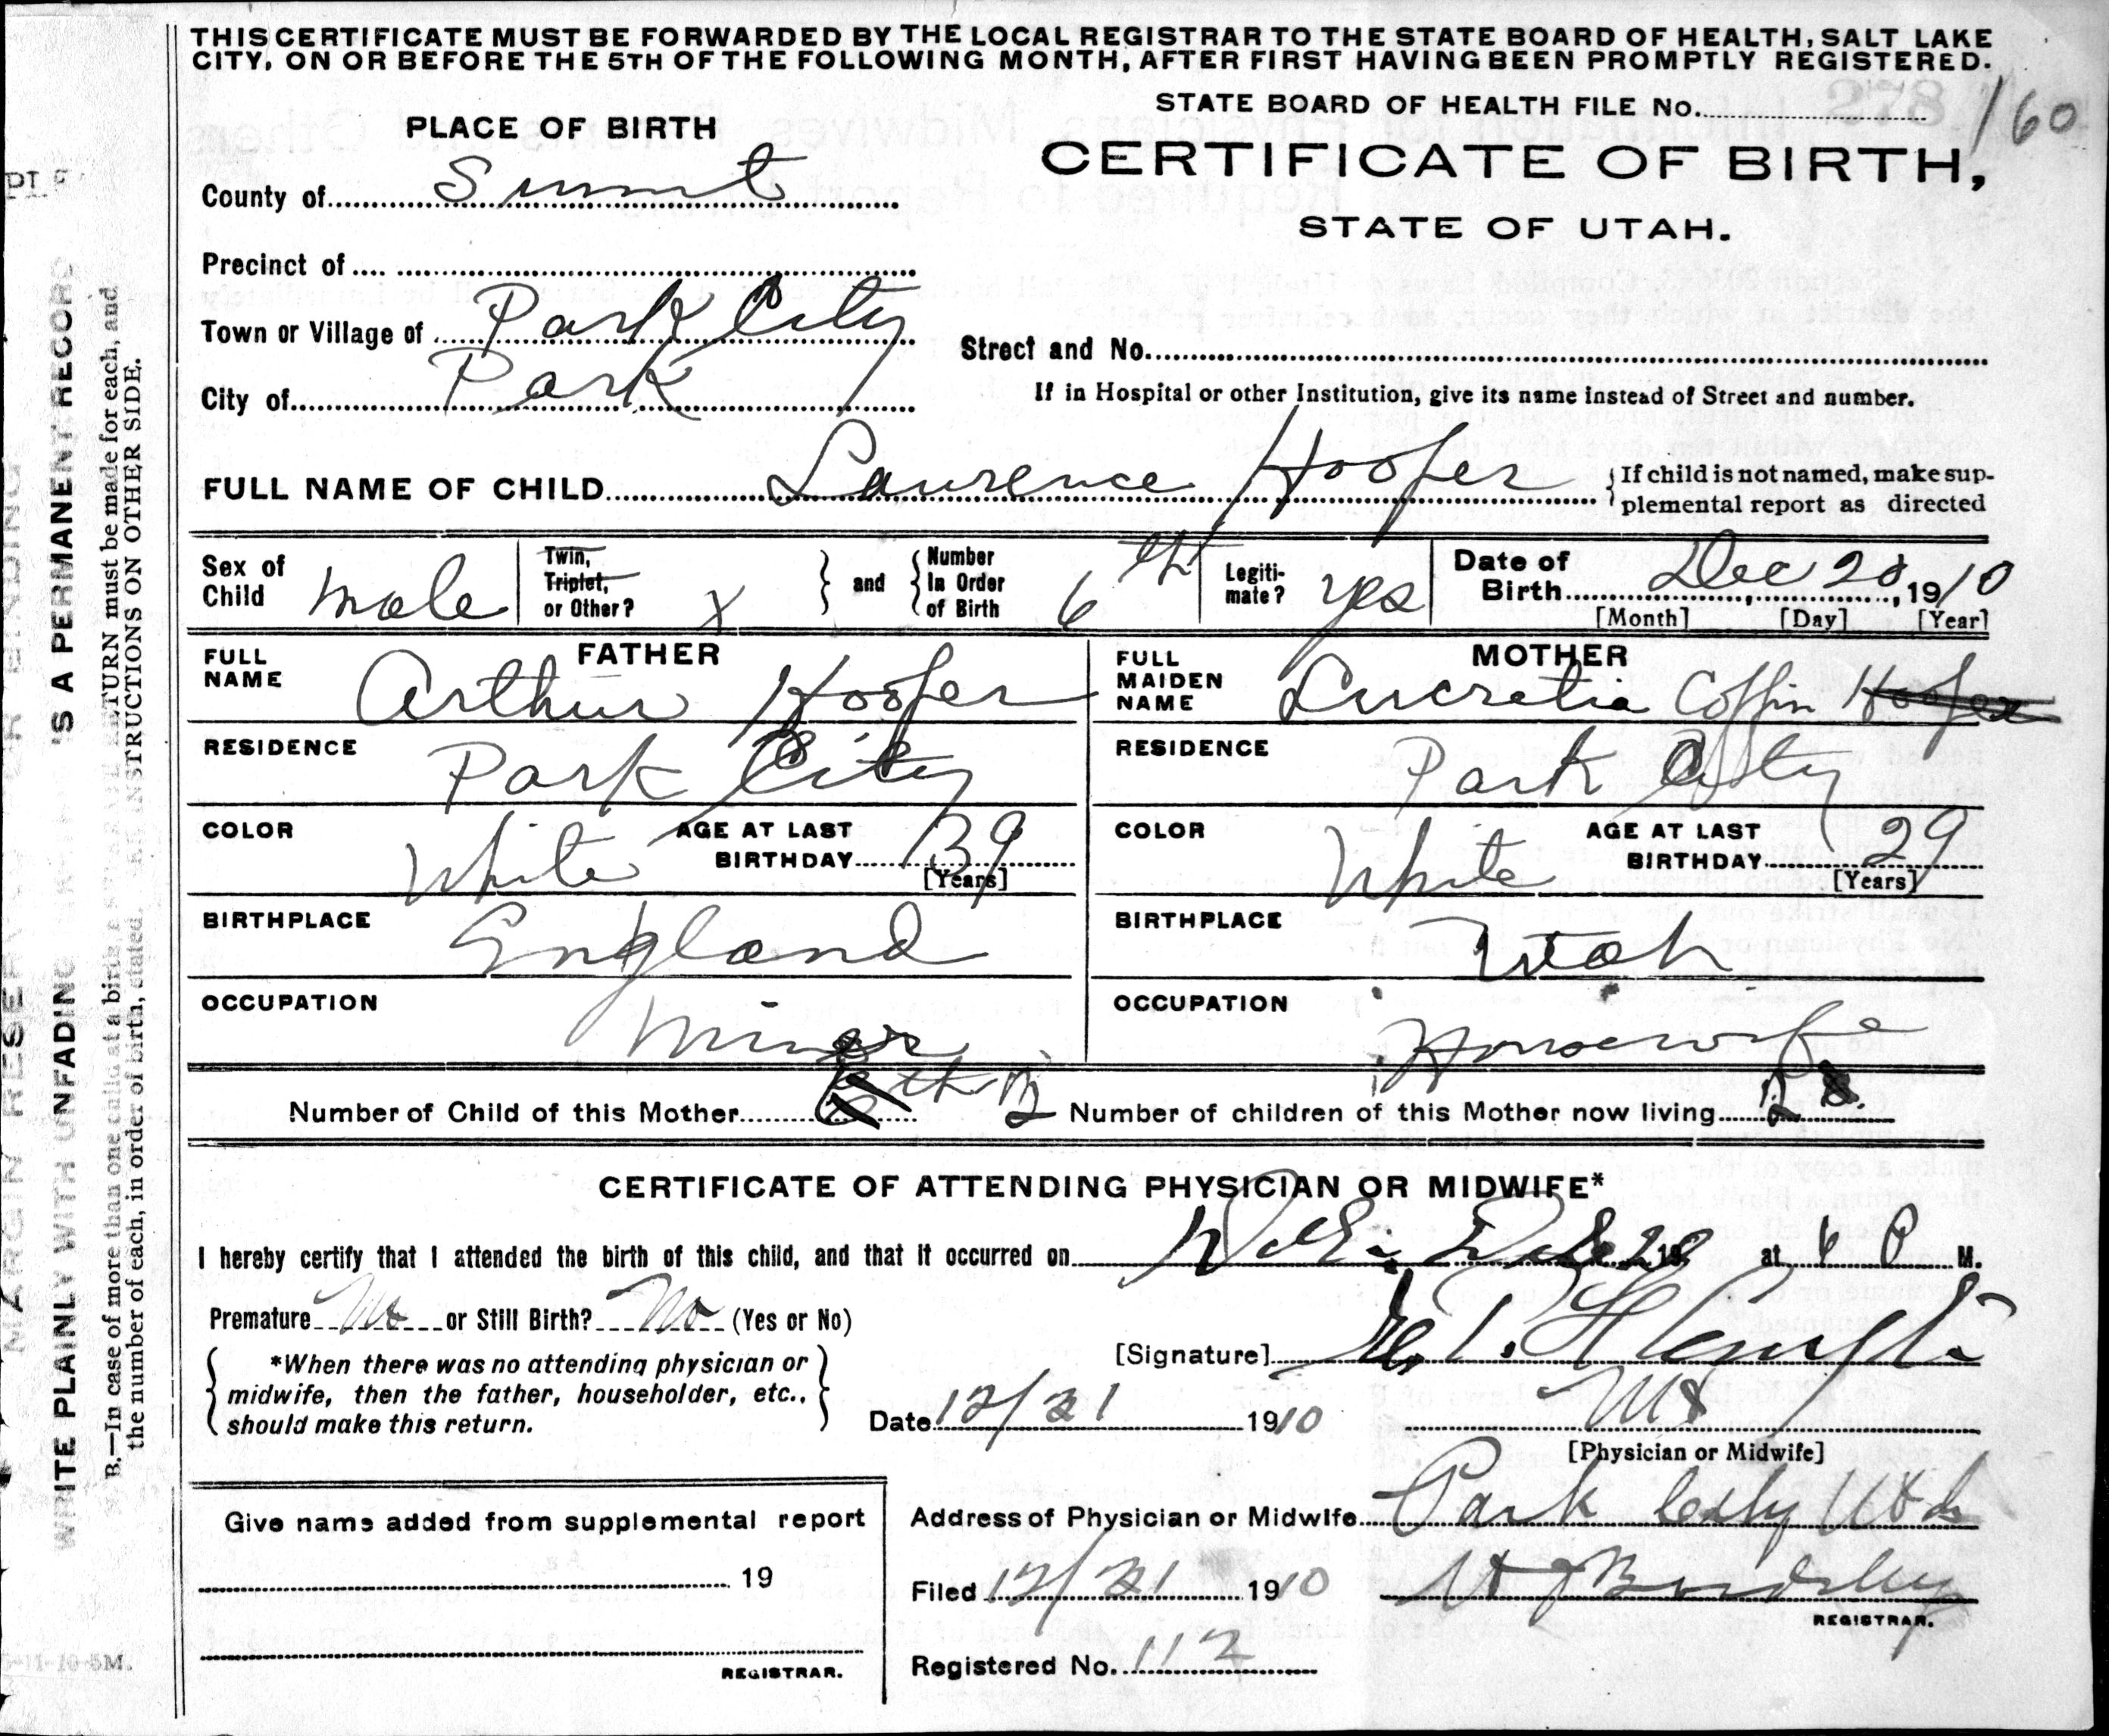 THIS CERTIFICATE MUST BE FORWARDED BY THE LOCAL REGISTRAR TO THE STATE BOARD OF HEALTH, SALT LAKE
CITY, ON OR BEFORE THE 5TH OF THE FOLLOWING MONTH, AFTER FIRST HAVING BEEN PROMPTLY REGISTERED.
STATE BOARD OF HEALTH FILE No. 278 160
PLACE OF BIRTH
CERTIFICATE OF BIRTH,
STATE OF UTAH.
County of Summit
Precinct of
Town or Village of Park City
Street and No.
City of Park
If in Hospital or other Institution, give its name instead of Street and number.
FULL NAME OF CHILD Lawrence Hoofer
If child is not named, make sup-
plemental report as directed
Sex of Child male
Twin, Triplet, or Other? x
and
Number In Order of Birth 6th
Legiti-mate? yes
Date of Birth Dec 20, 1910
[Month] [Day] [Year]
FATHER
FULL NAME Arthur Hoofer
MOTHER
FULL MAIDEN NAME Lucretia Coffin Hoofer
RESIDENCE Park City
RESIDENCE Park City
COLOR White AGE AT LAST BIRTHDAY 39
[Years]
COLOR White AGE AT LAST BIRTHDAY 29
[Years]
BIRTHPLACE England
BIRTHPLACE Utah
OCCUPATION Miner
OCCUPATION Housewife
Number of Child of this Mother
Number of children of this Mother now living
CERTIFICATE OF ATTENDING PHYSICIAN OR MIDWIFE*
I hereby certify that I attended the birth of this child, and that it occurred on 19 at M.
Premature No or Still Birth? No (Yes or No)
*When there was no attending physician or
midwife, then the father, householder, etc.,
should make this return.
[Signature]
Date 12/21 1910
[Physician or Midwife]
Give name added from supplemental report
19
REGISTRAR.
Address of Physician or Midwife Park City Utah
Filed 12/21 1910
REGISTRAR.
Registered No. 112
WRITE PLAINLY WITH UNFADING
IS A PERMANENT RECORD
B.—In case of more than one child at a birth, a RETURN must be made for each, and
the number of each, in order of birth, stated. INSTRUCTIONS ON OTHER SIDE.